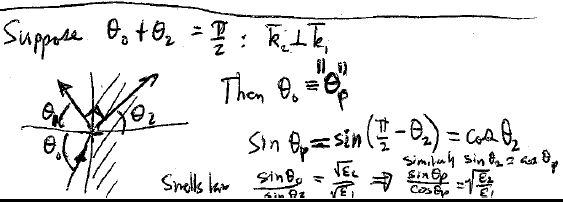 Suppose θ₀ + θ₂ = π/2 : k̄₂ ⊥ k̄₁
Then θ₀ ≡ "θp"
θ₀ θ₂
sin θp = sin(π/2 - θ₂) = cos θ₂
similarly sin θ₂ = cos θp
Snells law sinθ₀/sinθ₂ = √ε₂/√ε₁ ⇒ sinθp/cosθp = √(ε₂/ε₁)